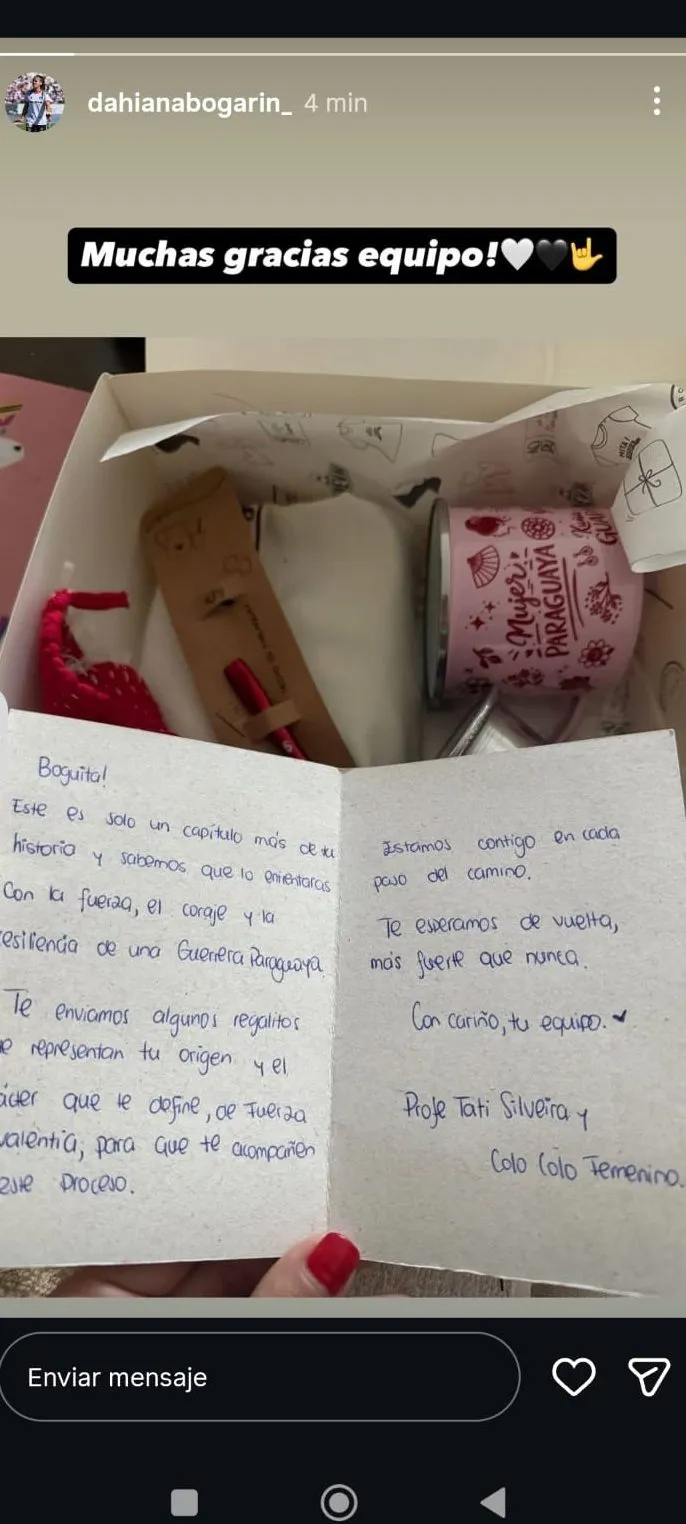 dahianabogarin_ 4 min
Muchas gracias equipo!🤍🖤🤟
Mujer
PARAGUAYA
Boguita!
Este es solo un capítulo más de tu
historia y sabemos que lo enfentaras
Con la fuerza, el coraje y la
resiliencia de una Guerrera Paraguaya
Te enviamos algunos regalitos
e representan tu origen y el
ácter que te define, de Fuerza
valentía, para que te acompañen
este proceso.
Estamos contigo en cada
paso del camino.
Te esperamos de vuelta,
más fuerte que nunca.
Con cariño, tu equipo.
Profe Tati Silveira y
Colo Colo Femenino.
Enviar mensaje